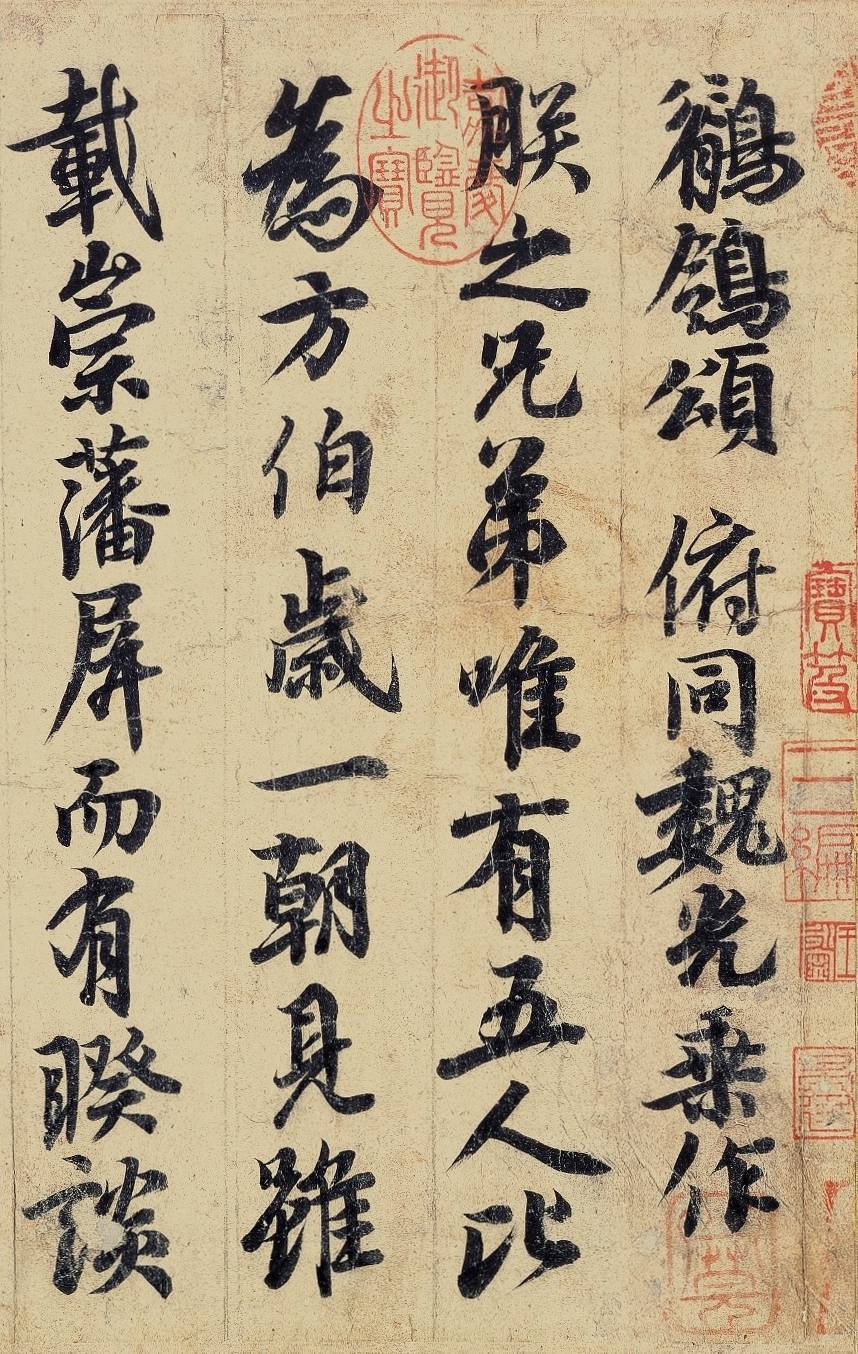 鶺鴒頌 俯同魏光乘作
朕之兄弟唯有五人比
為方伯歲一朝見雖
載崇藩屏而有暌談
嘉慶御覽之寶